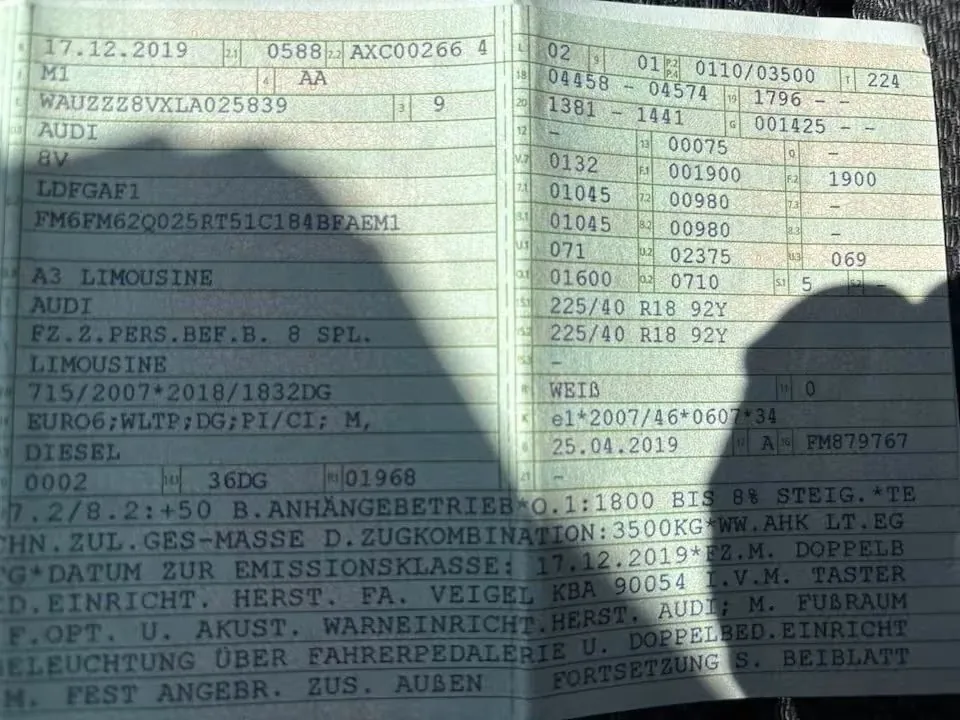 17.12.2019 2.1 0588 2.2 AXC00266 4
M1 4 AA
WAUZZZ8VXLA025839 3 9
AUDI
8V
LDFGAF1
FM6FM62Q025RT51C184BFAEM1
A3 LIMOUSINE
AUDI
FZ.Z.PERS.BEF.B. 8 SPL.
LIMOUSINE
715/2007*2018/1832DG
EURO6;WLTP;DG;PI/CI; M,
DIESEL
0002 14.1 36DG P.1 01968
L 02 9 01 P.2 P.4 0110/03500 T 224
18 04458 - 04574 19 1796 - -
20 1381 - 1441 G 001425 - -
12 - 13 00075 Q -
V.7 0132 F.1 001900 F.2 1900
7.1 01045 7.2 00980 7.3 -
8.1 01045 8.2 00980 8.3 -
U.1 071 U.2 02375 U.3 069
O.1 01600 O.2 0710 S.1 5 S.2 -
15.1 225/40 R18 92Y
15.2 225/40 R18 92Y
15.3 -
R WEIß 11 0
K e1*2007/46*0607*34
6 25.04.2019 17 A 16 FM879767
21 -
7.2/8.2:+50 B.ANHÄNGEBETRIEB*O.1:1800 BIS 8% STEIG.*TE
CHN.ZUL.GES-MASSE D.ZUGKOMBINATION:3500KG*WW.AHK LT.EG
G*DATUM ZUR EMISSIONSKLASSE: 17.12.2019*FZ.M. DOPPELB
ED.EINRICHT. HERST. FA. VEIGEL KBA 90054 I.V.M. TASTER
F.OPT. U. AKUST. WARNEINRICHT.HERST. AUDI; M. FUßRAUM
BELEUCHTUNG ÜBER FAHRERPEDALERIE U. DOPPELBED.EINRICHT
M. FEST ANGEBR. ZUS. AUßEN FORTSETZUNG S. BEIBLATT